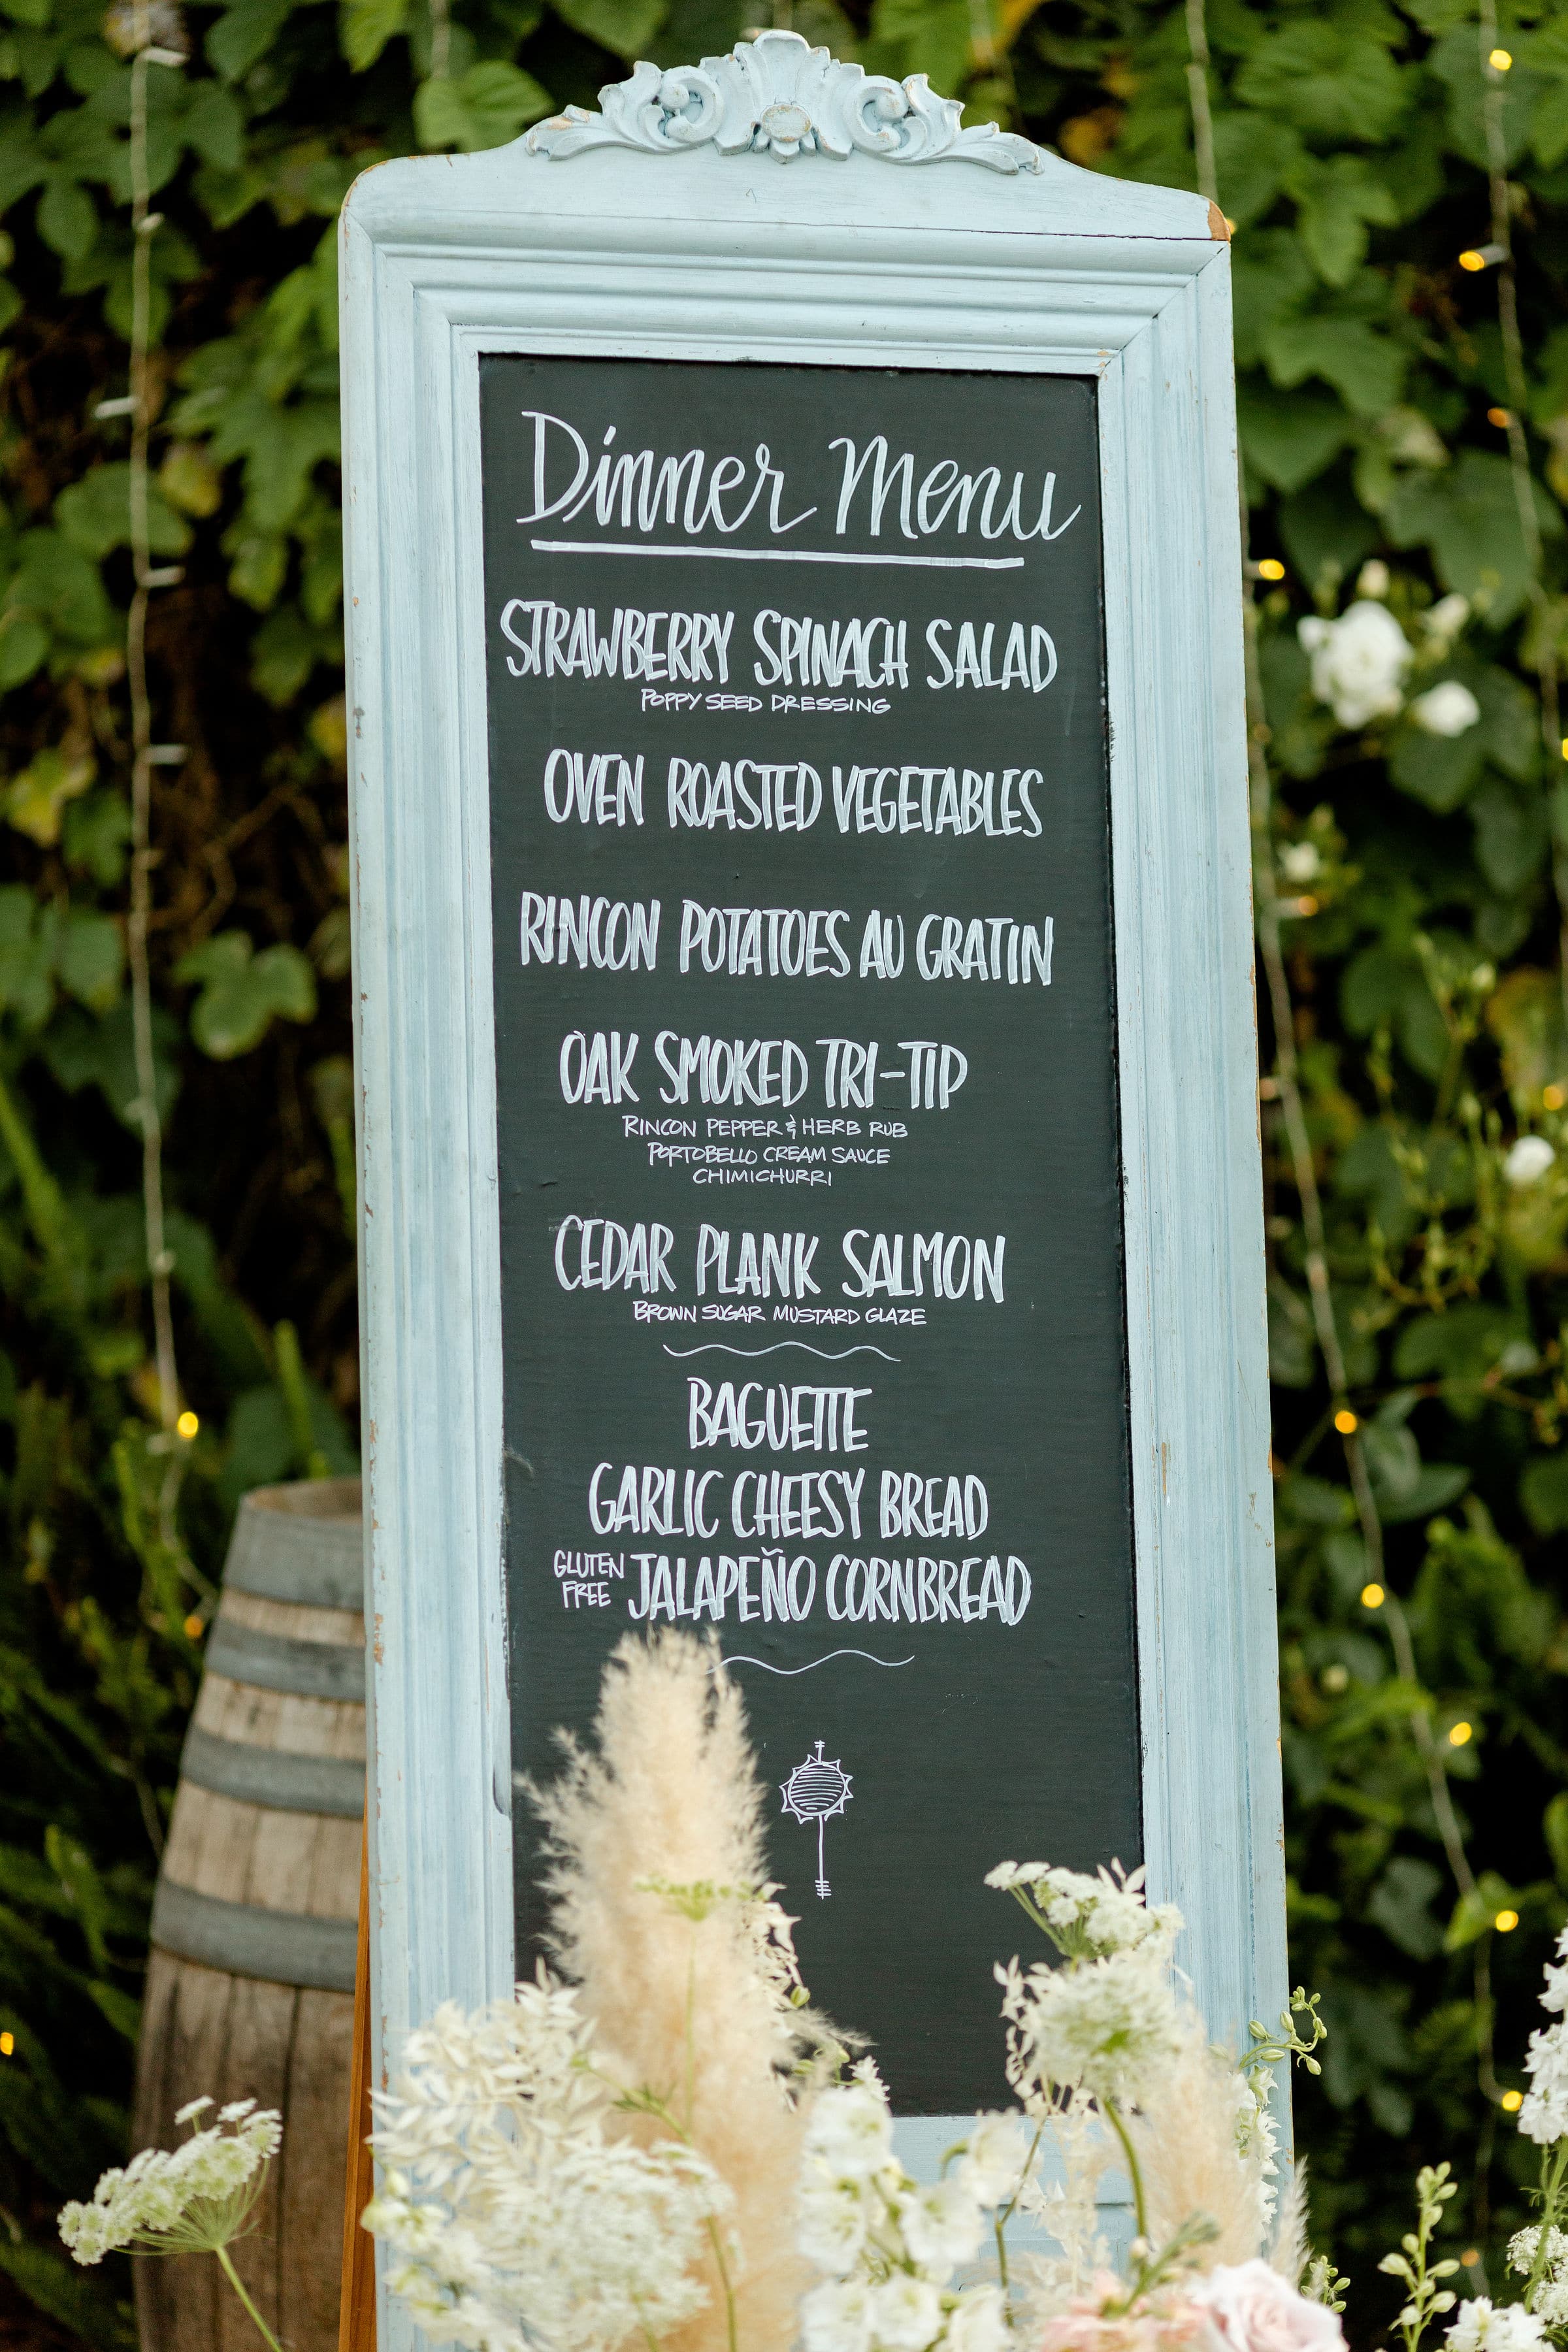 Dinner Menu
STRAWBERRY SPINACH SALAD
POPPY SEED DRESSING
OVEN ROASTED VEGETABLES
RINCON POTATOES AU GRATIN
OAK SMOKED TRI-TIP
RINCON PEPPER & HERB RUB
PORTOBELLO CREAM SAUCE
CHIMICHURRI
CEDAR PLANK SALMON
BROWN SUGAR MUSTARD GLAZE
BAGUETTE
GARLIC CHEESY BREAD
GLUTEN FREE JALAPEÑO CORNBREAD